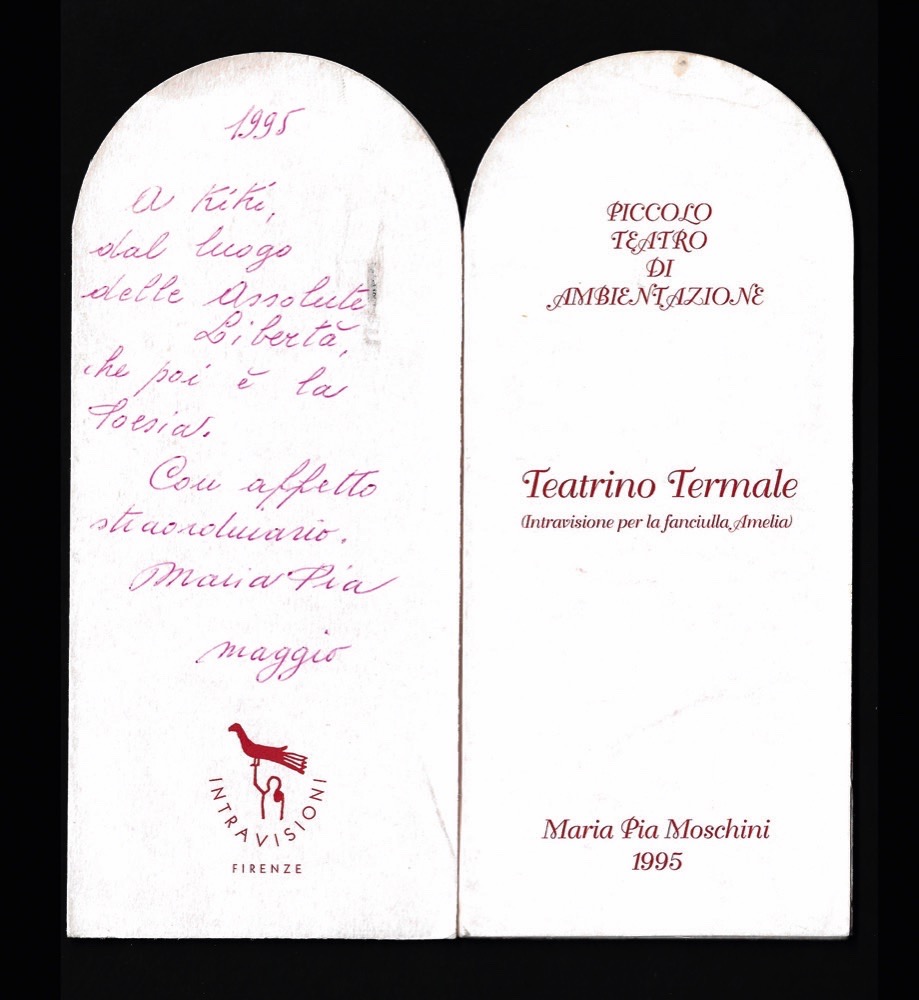 1995
A Kiki,
dal luogo
delle Assolute
Libertà,
che poi è la
Poesia.
Con affetto
straordinario.
Maria Pia
maggio
INTRAVISIONI
FIRENZE
PICCOLO
TEATRO
DI
AMBIENTAZIONE
Teatrino Termale
(Intravisione per la fanciulla Amelia)
Maria Pia Moschini
1995